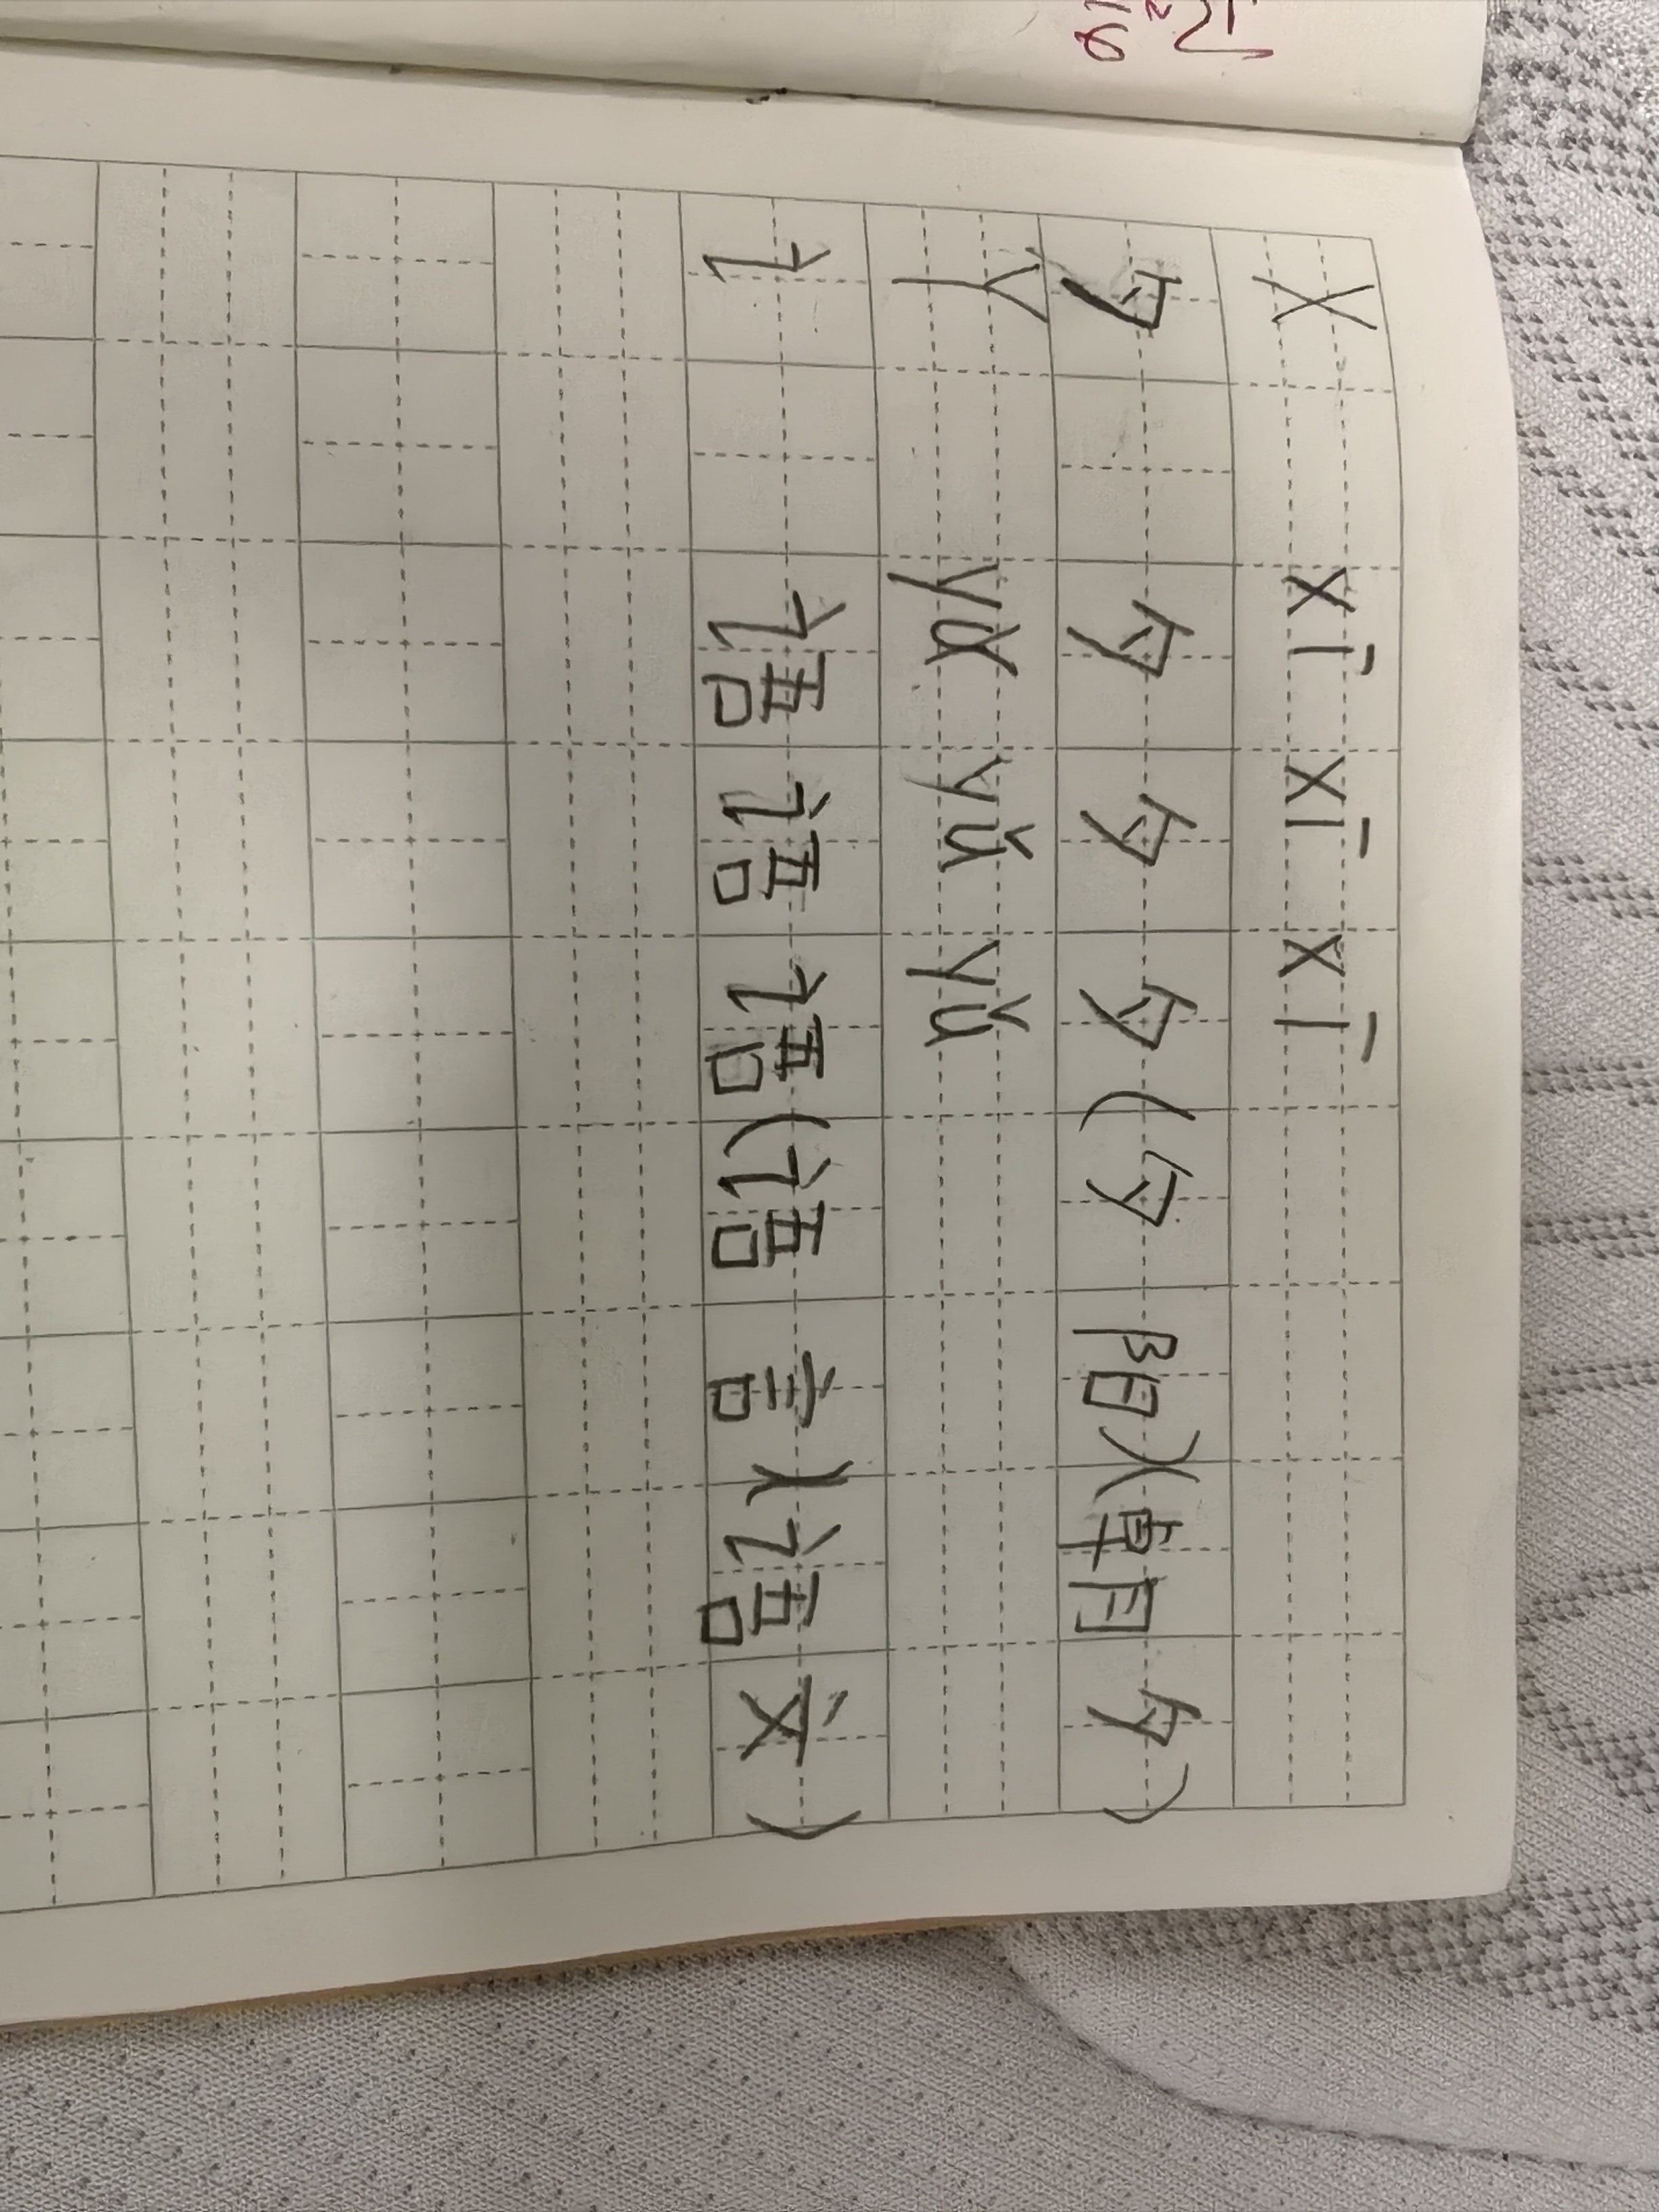 X xī xī xī
夕 夕 夕 夕(夕阳)(朝夕)
Y yǔ yǔ yǔ
讠 语 语 语(语言)(语文)